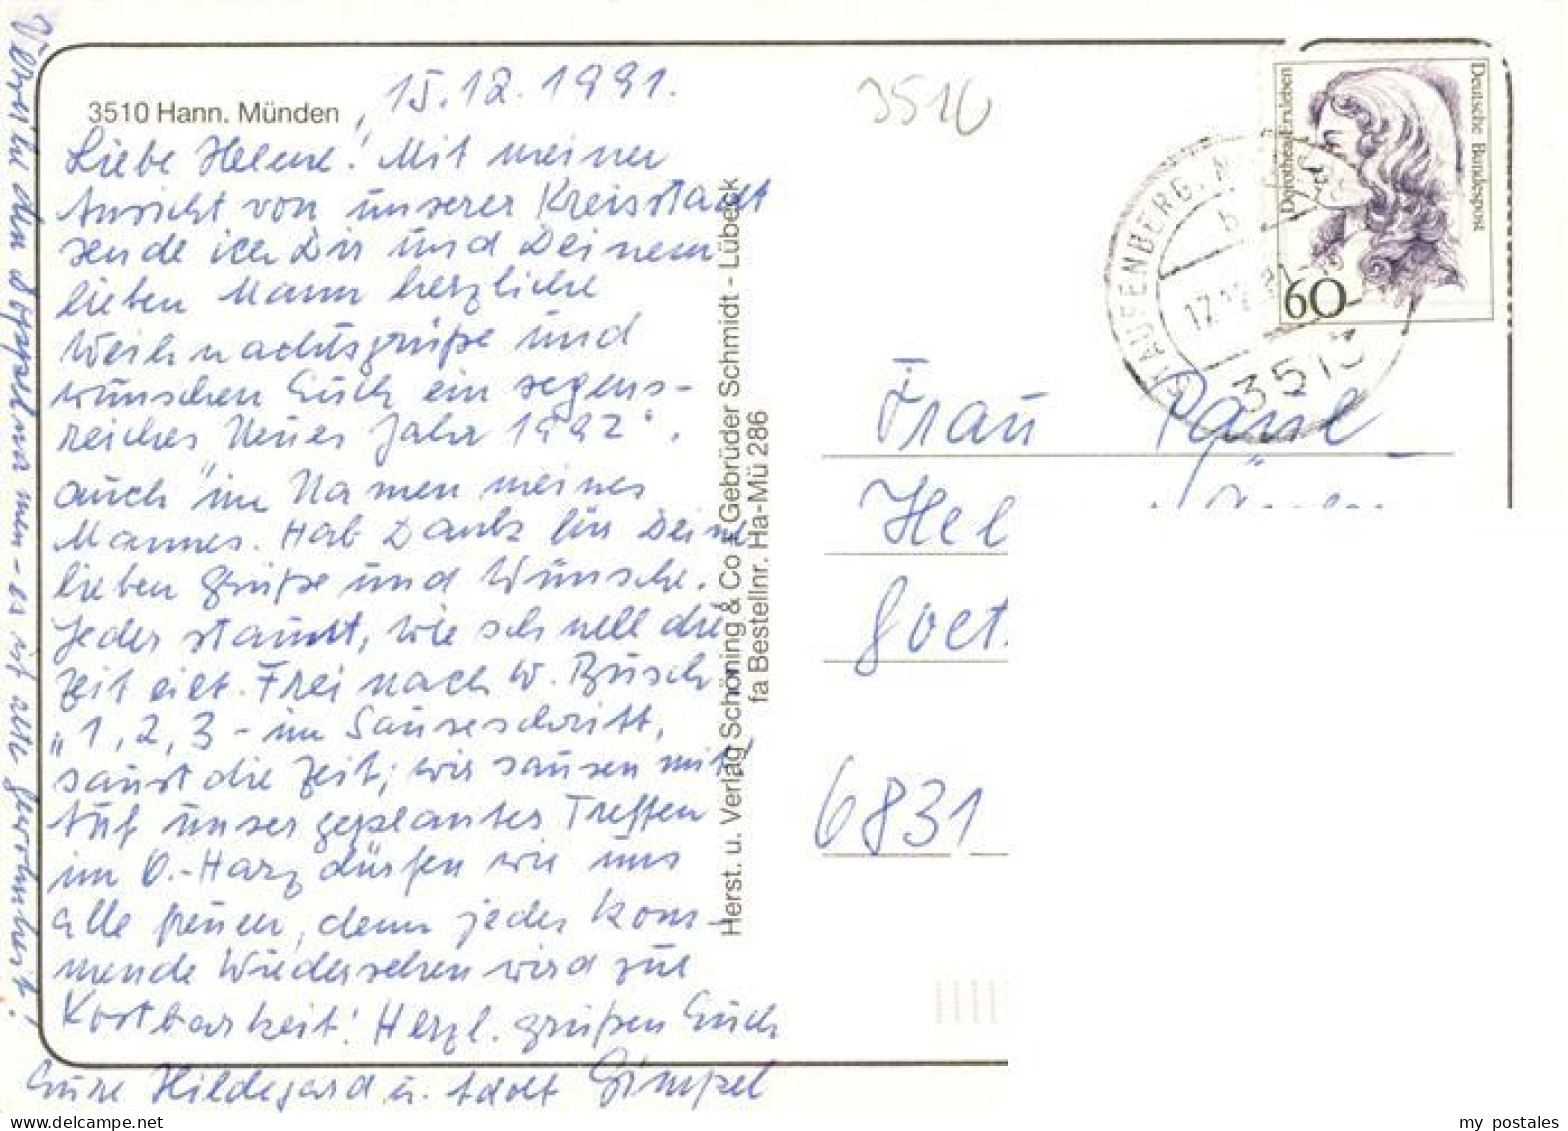 3510 Hann. Münden
15.12.1991.
Liebe Helene! Mit meiner
Ansicht von unserer Kreisstadt
sende ich Dir und Deinem
lieben Mann herzliche
Weihnachtsgrüße und
wünschen Euch ein segens-
reiches Neues Jahr 1992",
auch im Namen meines
Mannes. Hab Dank für Deine
lieben Grüße und Wünsche.
Jeder staunt, wie schnell die
Zeit eilt. Frei nach W. Busch
„1, 2, 3 - im Sauseschritt,
saust die Zeit, wir sausen mit,
Auf unser geplantes Treffen
im O.-Harz dürfen wir uns
alle freuen, denn jedes kom-
mende Wiedersehen wird zur
Kostbarkeit! Herzl. grüßen Euch
Eure Hildegard u. Adolf Gimpel
Verzeihe den Doppelna men - es ist alte Gewohnheit!
Herst. u. Verlag Schöning & Co + Gebrüder Schmidt - Lübeck
fa Bestellnr. Ha-Mü 286
3510
Deutsche Bundespost
Dorothea Erxleben
60
STAUFENBERG, N
b
17.12.91
3513
Frau
Hel
Goet
6831
my postales